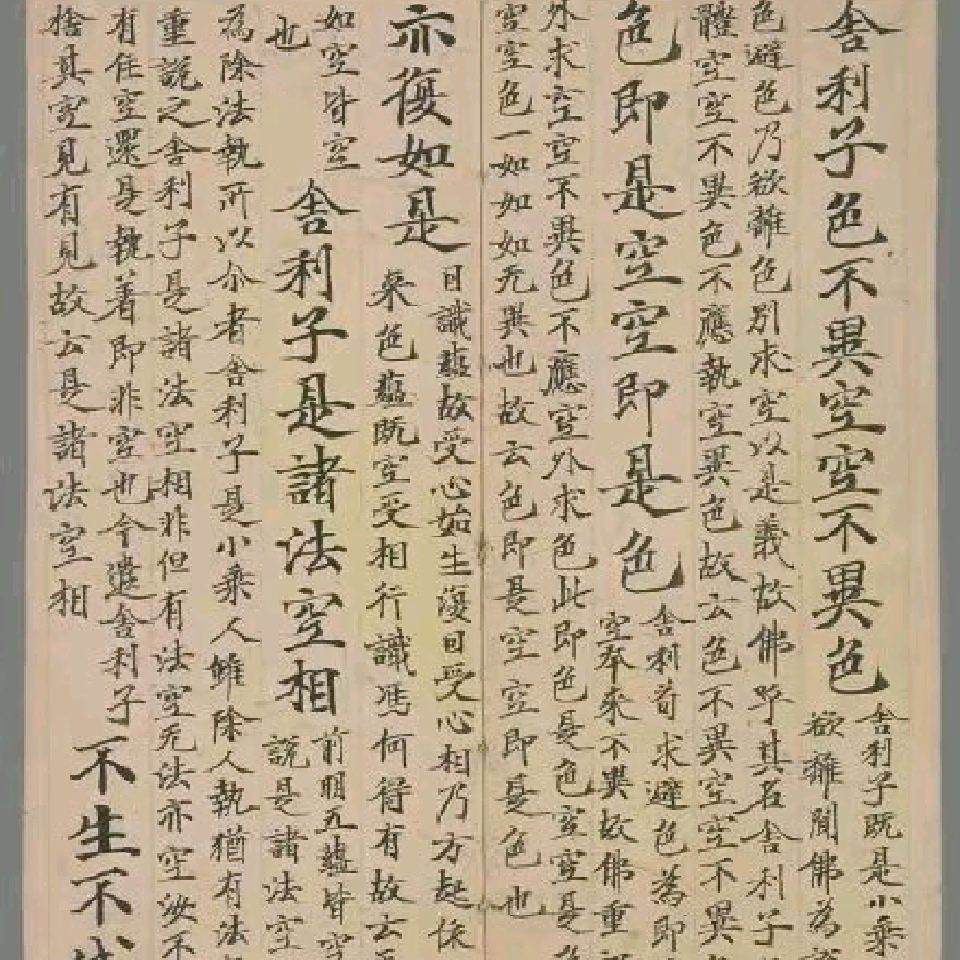 舎利子色不異空空不異色
舎利子既是小乘
欲離聞佛為
色避色乃欲離色別求空以是義故佛呼其名舎利子
體空空不異色不應執空異色故云色不異空空不異
色即是空空即是色
舎利苟求避色為即
空本來不異故佛重
外求空空不異色不應空外求色此即色是色空空是
空空色一如如如无異也故云色即是空空即是色也
亦復如是
目識藴故受心始生復目受心相乃方起依
來色藴既空受相行識馮何得有故云
如空皆空
也
舎利子是諸法空相
前明五藴皆空
說是諸法空
為除法執所以尒者舎利子是小乘人雖除人執猶有法
重說之舎利子是諸法空相非但有法空无法亦空汝不
有住空還是執著即非空也今遣舎利子
捨其空見有見故云是諸法空相
不生不